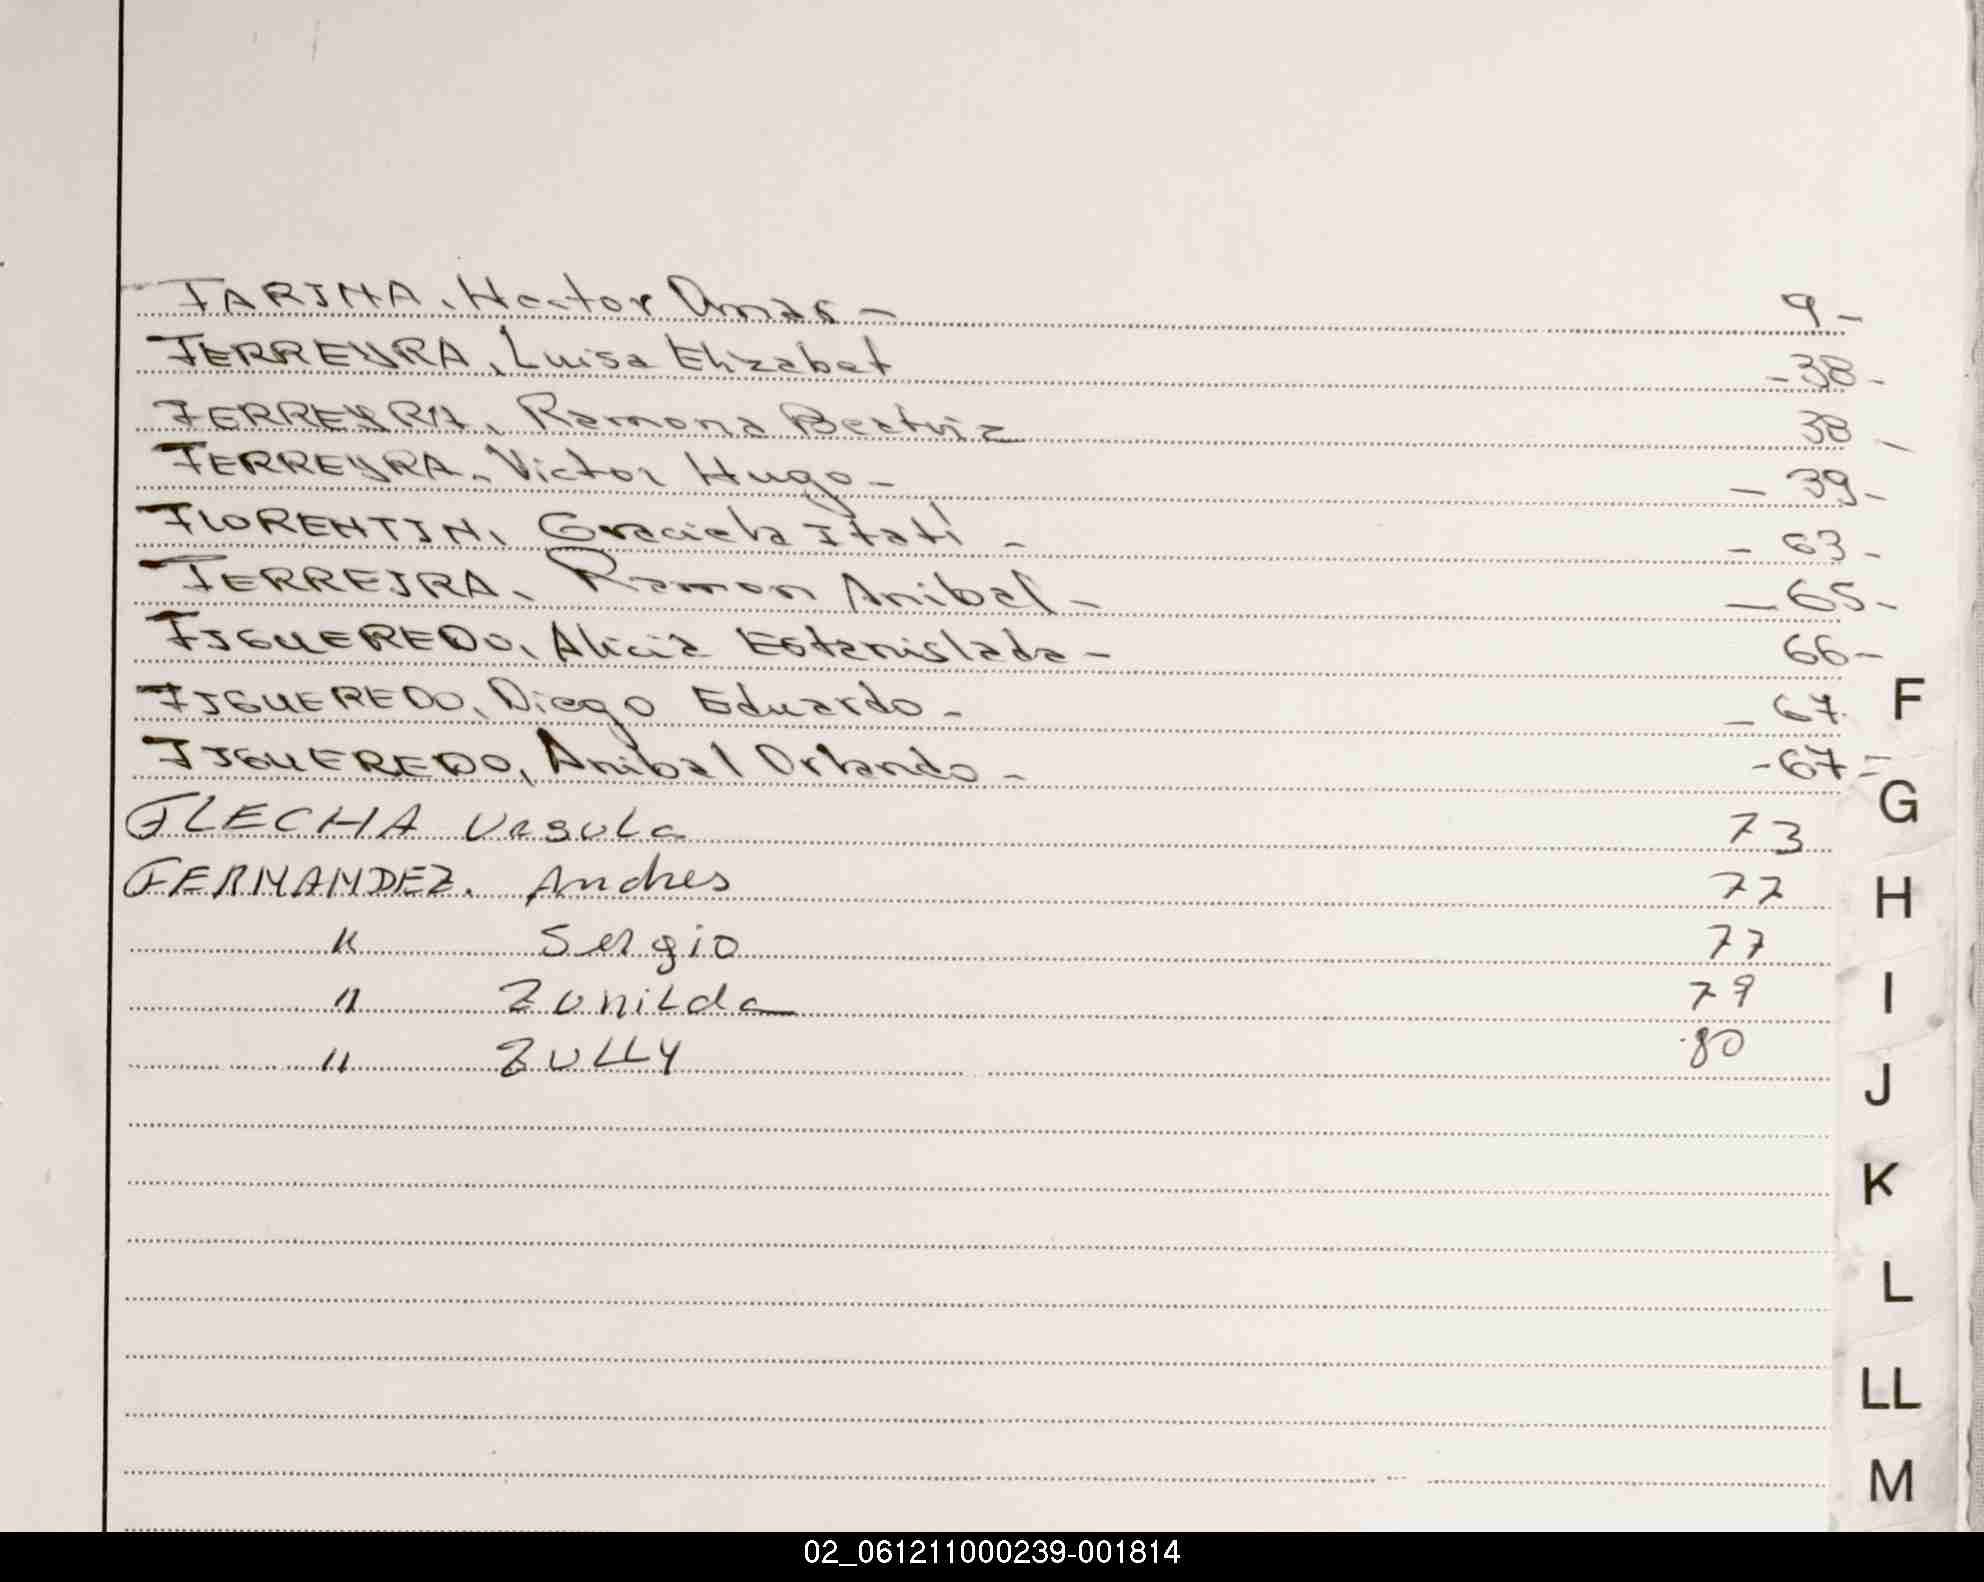 FARINA, Hector Omar – 9 –
FERREYRA, Luisa Elizabet – 38 –
FERREYRA, Ramona Beatriz 38 –
FERREYRA, Victor Hugo – – 39 –
FLORENTIN, Graciela Itatí – – 63 –
FERREIRA, Ramon Anibal – – 65 –
FIGUEREDO, Alicia Estanislada – 66 –
FIGUEREDO, Diego Eduardo – – 67
FIGUEREDO, Anibal Orlando – – 67 –
FLECHA Ursula 73
FERNANDEZ. Andres 77
" Sergio 77
" Zunilda 79
" ZULLY 80
F
G
H
I
J
K
L
LL
M
02_061211000239-001814